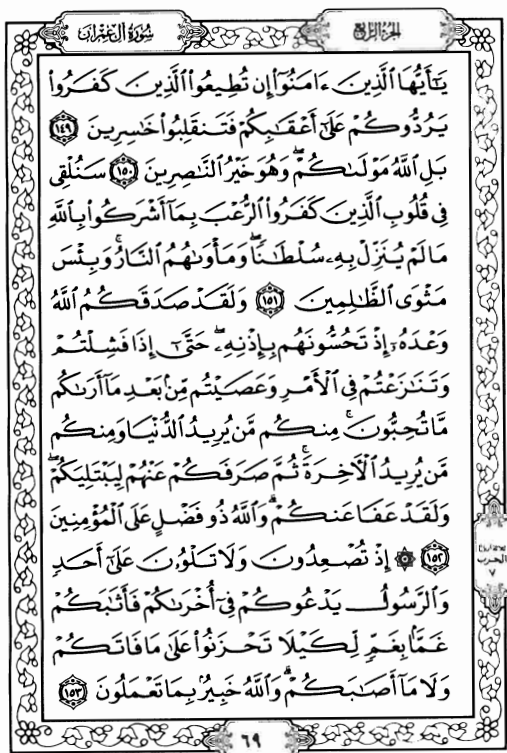 سُورَةُ آلِ عِمْرَان
الجُزءُ الرَّابِعُ
يَٰٓأَيُّهَا ٱلَّذِينَ ءَامَنُوٓا۟ إِن تُطِيعُوا۟ ٱلَّذِينَ كَفَرُوا۟
يَرُدُّوكُمْ عَلَىٰٓ أَعْقَٰبِكُمْ فَتَنقَلِبُوا۟ خَٰسِرِينَ ١٤٩
بَلِ ٱللَّهُ مَوْلَىٰكُمْ ۖ وَهُوَ خَيْرُ ٱلنَّٰصِرِينَ ١٥٠ سَنُلْقِى
فِى قُلُوبِ ٱلَّذِينَ كَفَرُوا۟ ٱلرُّعْبَ بِمَآ أَشْرَكُوا۟ بِٱللَّهِ
مَا لَمْ يُنَزِّلْ بِهِۦ سُلْطَٰنًا ۖ وَمَأْوَىٰهُمُ ٱلنَّارُ ۚ وَبِئْسَ
مَثْوَى ٱلظَّٰلِمِينَ ١٥١ وَلَقَدْ صَدَقَكُمُ ٱللَّهُ
وَعْدَهُۥٓ إِذْ تَحُسُّونَهُم بِإِذْنِهِۦ ۖ حَتَّىٰٓ إِذَا فَشِلْتُمْ
وَتَنَٰزَعْتُمْ فِى ٱلْأَمْرِ وَعَصَيْتُم مِّنۢ بَعْدِ مَآ أَرَىٰكُم
مَّا تُحِبُّونَ ۚ مِنكُم مَّن يُرِيدُ ٱلدُّنْيَا وَمِنكُم
مَّن يُرِيدُ ٱلْـَٔاخِرَةَ ۚ ثُمَّ صَرَفَكُمْ عَنْهُمْ لِيَبْتَلِيَكُمْ ۖ
وَلَقَدْ عَفَا عَنكُمْ ۗ وَٱللَّهُ ذُو فَضْلٍ عَلَى ٱلْمُؤْمِنِينَ
١٥٢ ۞ إِذْ تُصْعِدُونَ وَلَا تَلْوُۥنَ عَلَىٰٓ أَحَدٍ
وَٱلرَّسُولُ يَدْعُوكُمْ فِىٓ أُخْرَىٰكُمْ فَأَثَٰبَكُمْ
غَمًّۢا بِغَمٍّ لِّكَيْلَا تَحْزَنُوا۟ عَلَىٰ مَا فَاتَكُمْ
وَلَا مَآ أَصَٰبَكُمْ ۗ وَٱللَّهُ خَبِيرٌۢ بِمَا تَعْمَلُونَ ١٥٣
الحزب
٧
٦٩